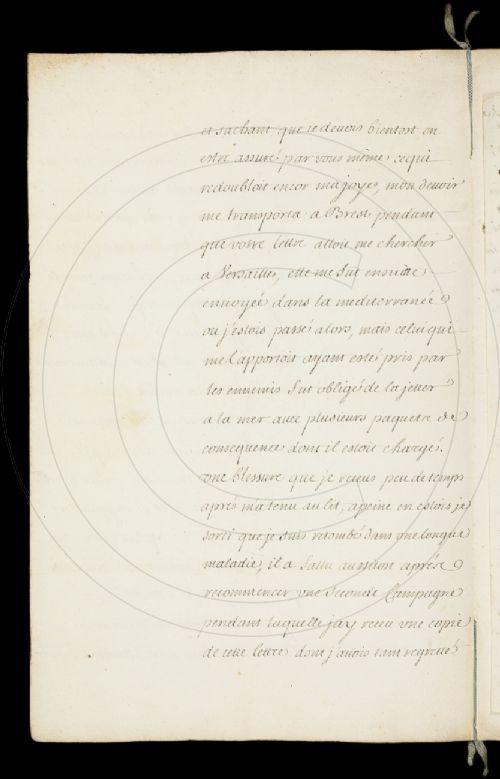 et sachant que ie devois bientost en
estre assuré par vous même ce qui
redoubloit encor ma joye, mon devoir
me transporta a Brest pendant
que votre lettre alloit me chercher
a Versailles, elle me fut ensuitte
envoyée dans la mediterranée
ou j'estois passé alors, mais celui qui
me l'apportoit ayant esté pris par
les ennemis fut obligé de la jetter
a la mer avec plusieurs paquets de
consequence dont il estoit chargé.
une blessure que je receus peu de temps
aprés m'a tenu au lit, a peine en estois je
sorti que je suis retombé dans une longue
maladie, il a fallu aussitost aprés
recommencer une seconde Campagne
pendant laquelle j'ay receu une copie
de cette lettre dont j'avois tant regretté